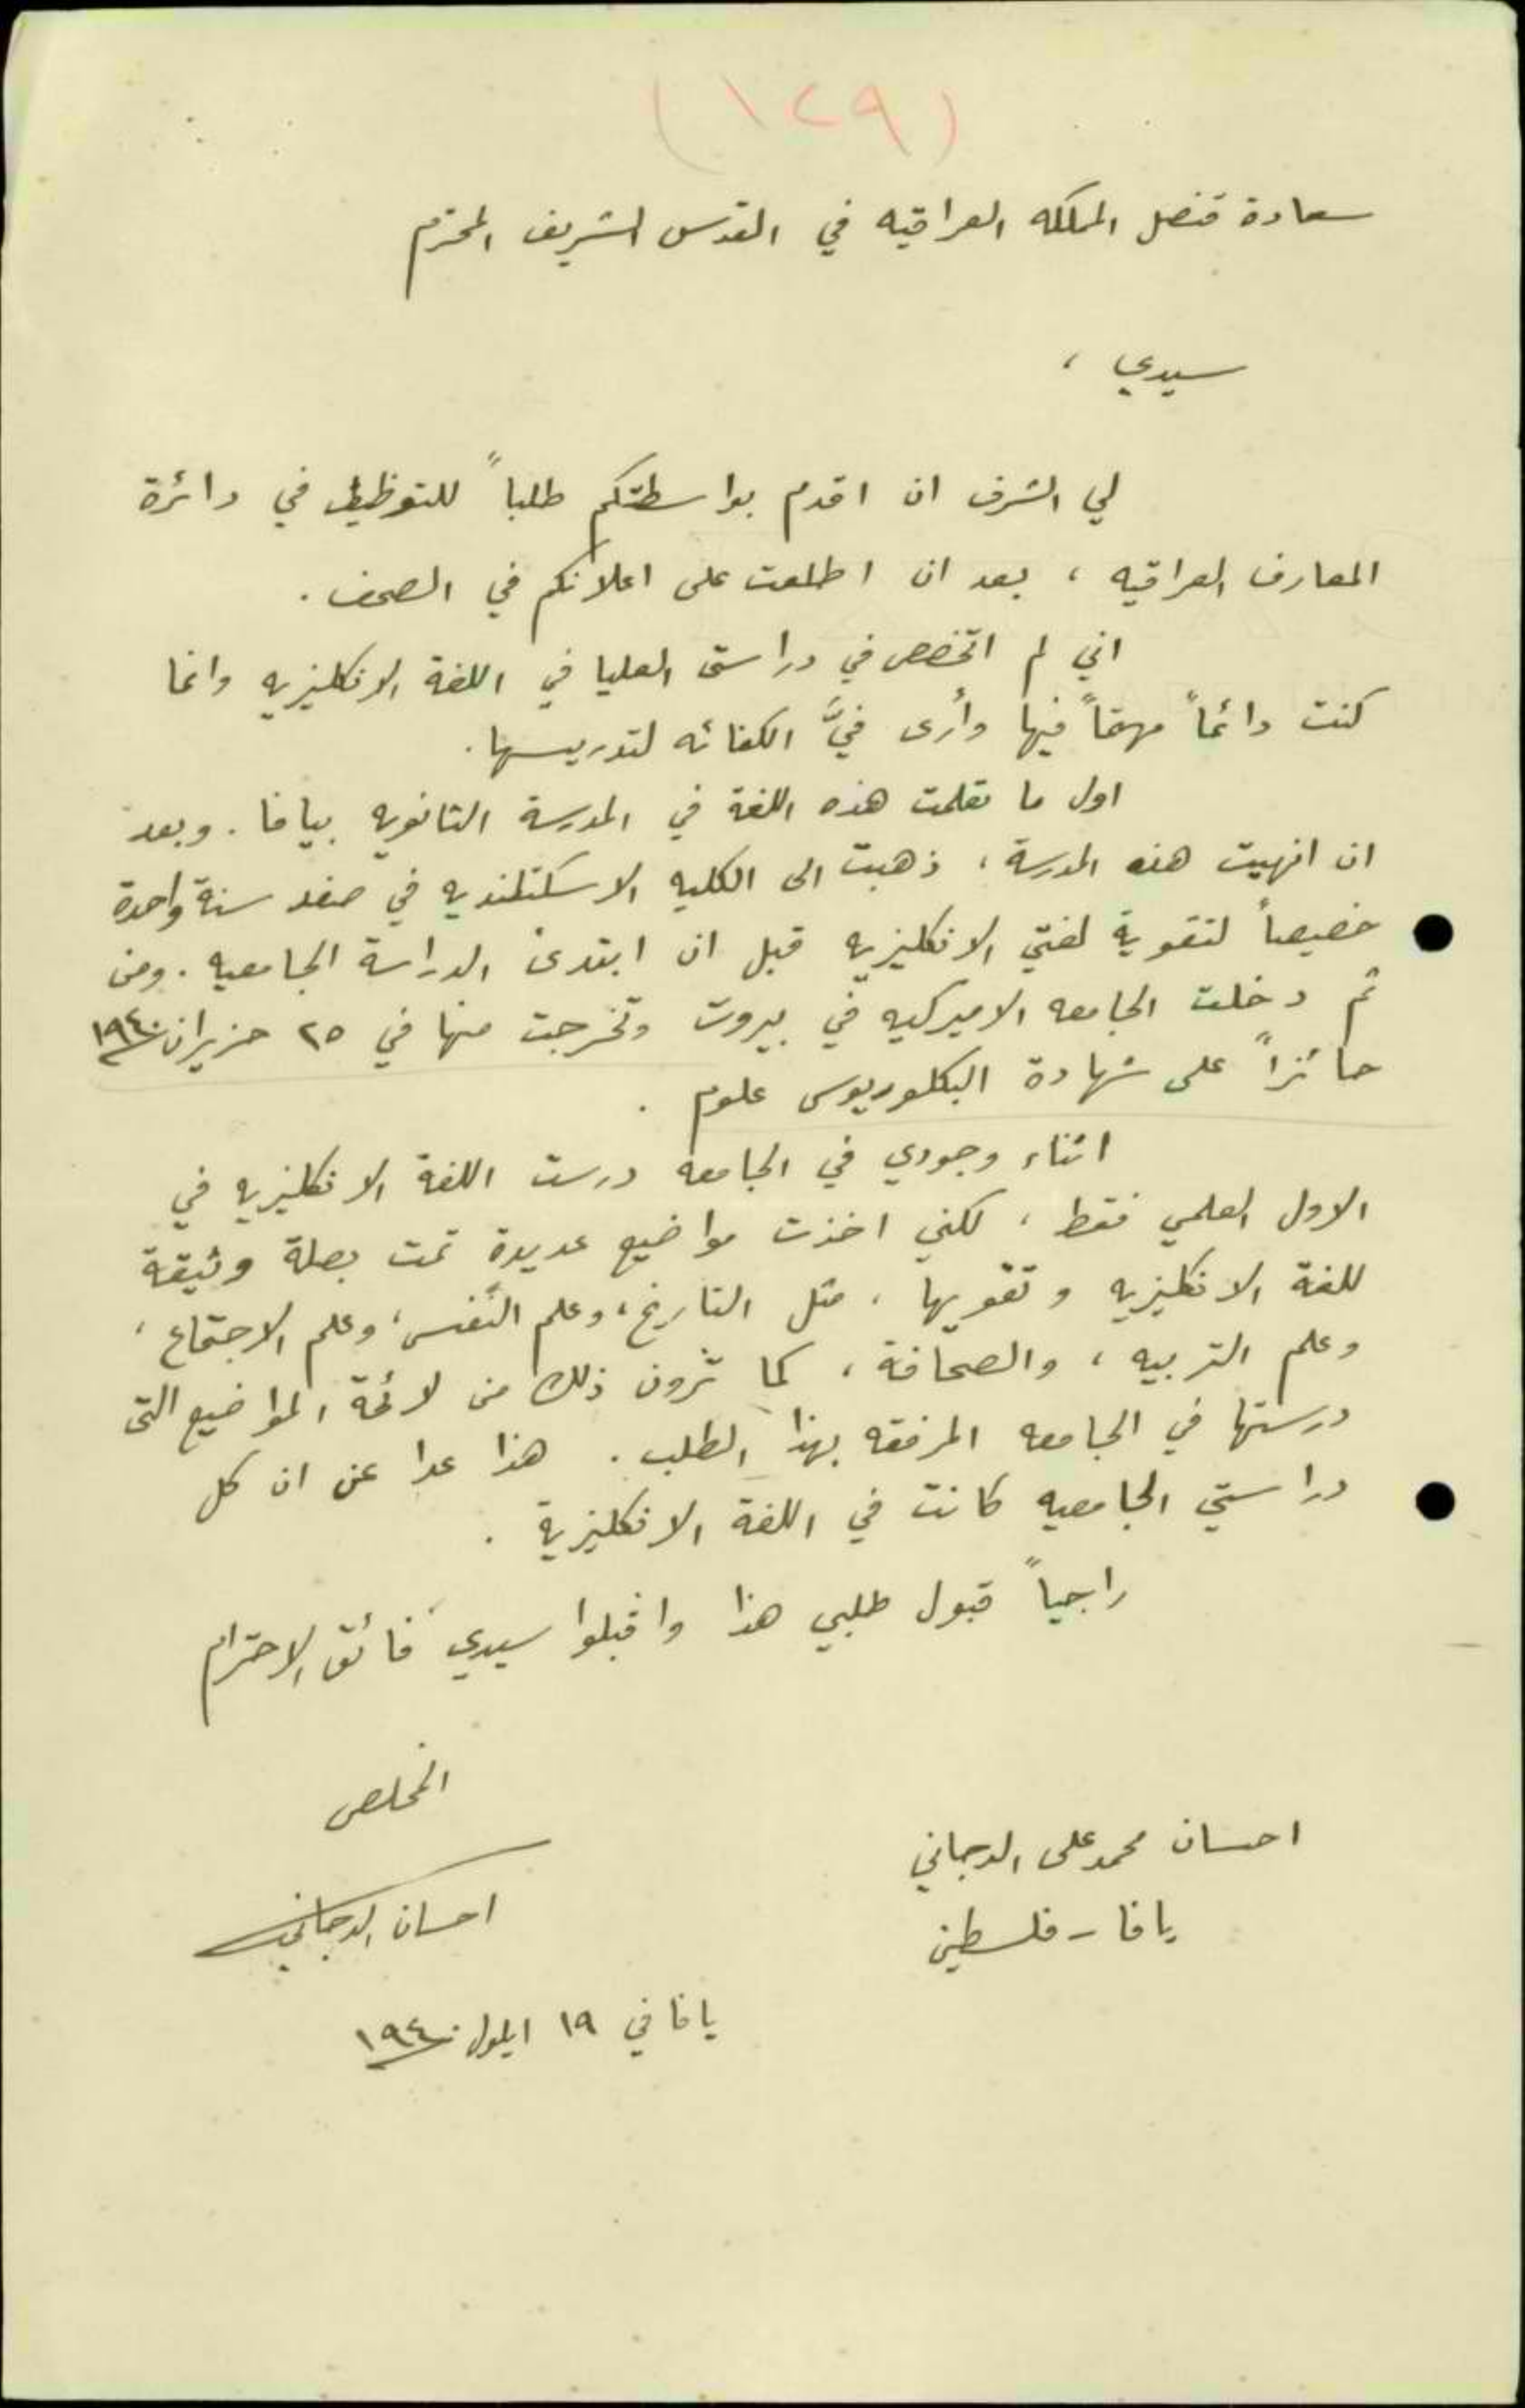 (١٢٩)
سعادة قنصل المملكه العراقيه في القدس الشريف المحترم
سيدي ،
لي الشرف ان اقدم بواسطتكم طلباً للتوظيف في دائرة
المعارف العراقيه ، بعد ان اطلعت على اعلانكم في الصحف .
اني لم اتخصص في دراستي العليا في اللغة الانكليزيه وانما
كنت دائماً مهتماً فيها وأرى فيَّ الكفائه لتدريسها .
اول ما تعلمت هذه اللغة في المدرسة الثانويه بيافا . وبعد
ان انهيت هذه المدرسة ، ذهبت الى الكليه الاسكتلنديه في صفد سنة واحدة
خصيصاً لتقوية لغتي الانكليزيه قبل ان ابتدئ الدراسة الجامعيه . ومن
ثم دخلت الجامعه الاميركيه في بيروت وتخرجت منها في ٢٥ حزيران ١٩٤٠
حائزاً على شهادة البكلوريوس علوم .
اثناء وجودي في الجامعه درست اللغة الانكليزيه في
الاول العلمي فقط ، لكني اخذت مواضيع عديدة تمت بصلة وثيقة
للغة الانكليزيه وتقويها ، مثل التاريخ ، وعلم النفس ، وعلم الاجتماع ،
وعلم التربيه ، والصحافة ، كما ترون ذلك من لائحة المواضيع التي
درستها في الجامعه المرفقه بهذا الطلب . هذا عدا عن ان كل
دراستي الجامعيه كانت في اللغة الانكليزية .
راجياً قبول طلبي هذا واقبلوا سيدي فائق الاحترام
المخلص
احسان محمد علي الدجاني
احسان الدجاني
يافا - فلسطين
يافا في ١٩ ايلول ١٩٤٠